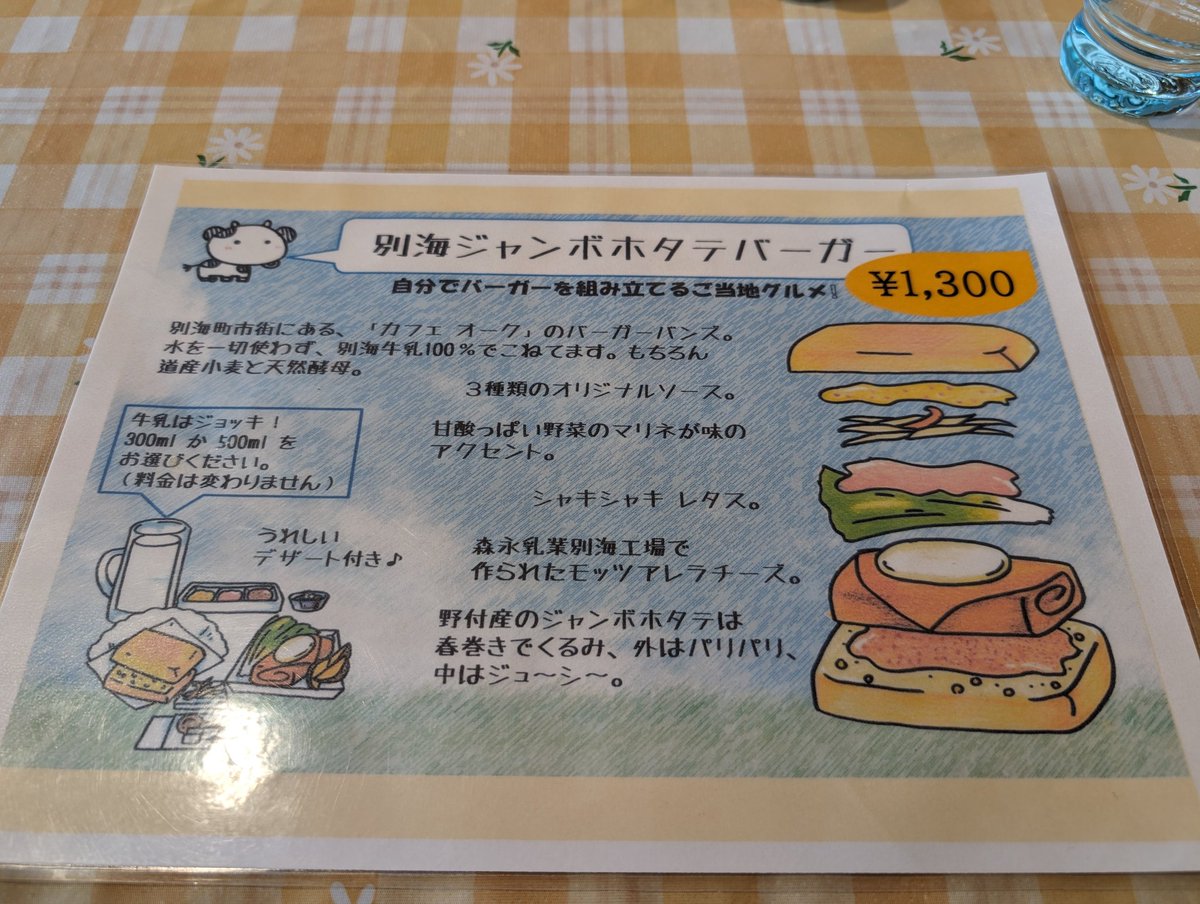 別海ジャンボホタテバーガー
¥1,300
自分でバーガーを組み立てるご当地グルメ!
別海町市街にある、「カフェ オーク」のバーガーバンズ。
水を一切使わず、別海牛乳100%でこねてます。もちろん
道産小麦と天然酵母。
3種類のオリジナルソース。
甘酸っぱい野菜のマリネが味の
アクセント。
シャキシャキ レタス。
森永乳業別海工場で
作られたモッツアレラチーズ。
野付産のジャンボホタテは
春巻きでくるみ、外はパリパリ、
中はジュ〜シ〜。
牛乳はジョッキ!
300ml か 500ml を
お選びください。
(料金は変わりません)
うれしい
デザート付き♪